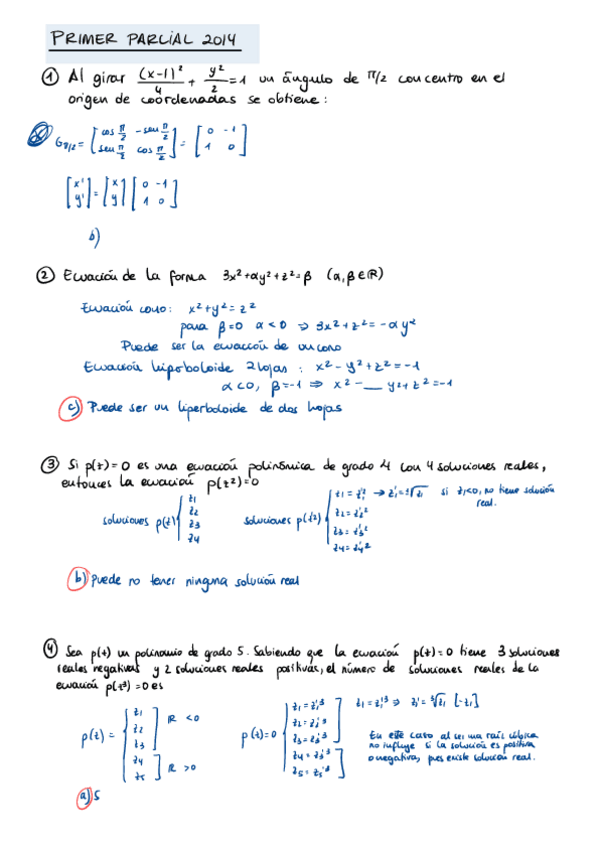 PRIMER PARCIAL 2014
① Al girar (x-1)²/4 + y²/2 = 1 un ángulo de π/2 con centro en el
origen de coordenadas se obtiene:
G π/2 = [cos π/2 -sen π/2 sen π/2 cos π/2] = [0 -1 1 0]
[x' y'] = [x y] [0 -1 1 0]
b)
② Ecuación de la forma 3x²+αy²+z²=β (α,β∈ℝ)
Ecuación cono: x²+y²=z²
para β=0 α<0 ⇒ 3x²+z²=-αy²
Puede ser la ecuación de un cono
Ecuación hiperboloide 2 hojas: x²-y²+z²=-1
α<0, β=-1 ⇒ x²-__y²+z²=-1
c) Puede ser un hiperboloide de dos hojas
③ Si p(z)=0 es una ecuación polinómica de grado 4 con 4 soluciones reales,
entonces la ecuación p(z²)=0
soluciones p(z) { z₁ z₂ z₃ z₄
soluciones p(z²) { z₁=z₁'² → z₁'=±√z₁ si z₁<0, no tiene solución real.
z₂=z₂'²
z₃=z₃'²
z₄=z₄'²
b) Puede no tener ninguna solución real
④ Sea p(t) un polinomio de grado 5. Sabiendo que la ecuación p(t)=0 tiene 3 soluciones
reales negativas y 2 soluciones reales positivas, el número de soluciones reales de la
ecuación p(t³)=0 es
p(t) = { z₁ z₂ z₃ ] ℝ <0
z₄ z₅ ] ℝ >0
p(t)=0 { z₁=z₁'³ z₁=z₁'³ ⇒ z₁'=³√z₁ [-z₁]
z₂=z₂'³
z₃=z₃'³
z₄=z₄'³
z₅=z₅'³
En este caso al ser una raíz cúbica
no influye si la solución es positiva
o negativa, pues existe solución real.
a) 5